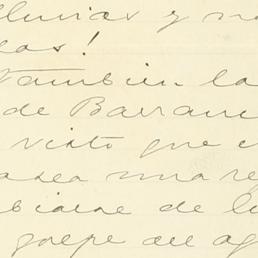 lluvias y no
las!
Tambien la
de Barran
visto que e
asea una re
biarse de lu
golpe del ag